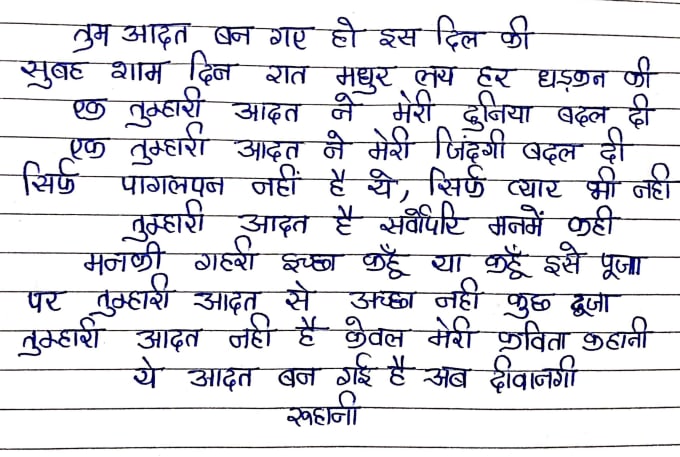 तुम आदत बन गए हो इस दिल की
सुबह शाम दिन रात मधुर लय हर धड़कन की
एक तुम्हारी आदत ने मेरी दुनिया बदल दी
एक तुम्हारी आदत ने मेरी जिंदगी बदल दी
सिर्फ पागलपन नहीं है ये, सिर्फ प्यार भी नही
तुम्हारी आदत है सर्वोपरि मनमें कही
मनकी गहरी इच्छा कहूँ या कहूँ इसे पूजा
पर तुम्हारी आदत से अच्छा नही कुछ दूजा
तुम्हारी आदत नही है केवल मेरी कविता कहानी
ये आदत बन गई है अब दीवानगी
रूहानी